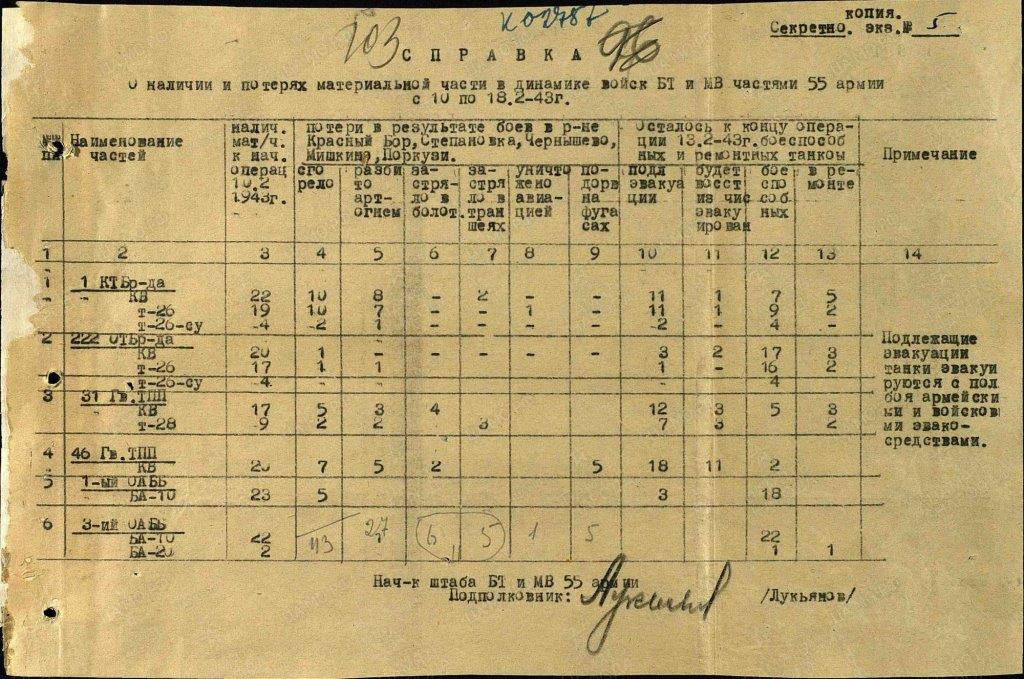 КОПИЯ.
К 02787
Секретно. экз.№ 5
103 СПРАВКА 96
О наличии и потерях материальной части в динамике войск БТ и МВ частями 55 армии
с 10 по 18.2-43г.
№№ пп | Наименование частей | налич. мат/ч. к нач. операц 10.2 1943г. | потери в результате боев в р-не Красный Бор, Степановка, Чернышево, Мишкино, Поркузи. | Осталось к концу опера-ции 13.2-43г. боеспособ ных и ремонтных танкоы | Примечание
сго рело | разби то арт-огнем | за-стря-ло в болот. | за-стря ло в тран шеях | уничто жено авиа-цией | по-дорв на фуга сах | подл эвакуа ции | будет восст из чис эваку ирован | бое спо соб ных | в ре-монте
1 | 2 | 3 | 4 | 5 | 6 | 7 | 8 | 9 | 10 | 11 | 12 | 13 | 14
1 | 1 КТБр-да
КВ | 22 | 10 | 8 | - | 2 | - | - | 11 | 1 | 7 | 5
т-26 | 19 | 10 | 7 | - | - | 1 | - | 11 | 1 | 9 | 2
т-26-су | 4 | 2 | 1 | - | - | - | - | 2 | - | 4 | -
2 | 222 ОТБр-да
КВ | 20 | 1 | - | - | - | - | - | 3 | 2 | 17 | 3
т-26 | 17 | 1 | 1 | 1 | - | 16 | 2
т-26-су | 4 | 4
3 | 31 Гв.ТПП
КВ | 17 | 5 | 3 | 4 | 12 | 3 | 5 | 3
т-28 | 9 | 2 | 2 | 3 | 7 | 3 | 2
4 | 46 Гв.ТПП
КВ | 20 | 7 | 5 | 2 | 5 | 18 | 11 | 2
5 | 1-ый ОАББ
БА-10 | 23 | 5 | 3 | 18
6 | 3-ий ОАББ
БА-10 | 22 | 22
БА-20 | 2 | 1 | 1
43 | 27 | 6 | 5 | 1 | 5
Подлежащие
эвакуации
танки эвакуи
руются с пол
боя армейски
ми и войсков
ми эвако-
средствами.
Нач-к штаба БТ и МВ 55 армии
Подполковник: /Лукьянов/